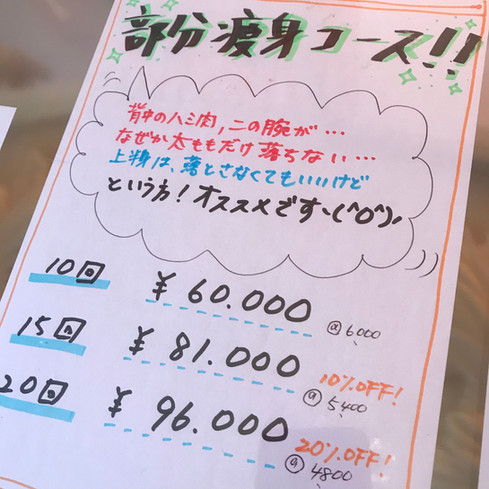 部分痩身コース!!
背中のハミ肉,二の腕が…
なぜか太ももだけ落ちない…
上半身は、落とさなくてもいいけど
という方!オススメです、(^o^),
10回 ¥60.000 @6,000
15回 ¥81.000 10%OFF! @5,400
20回 ¥96.000 20%OFF! @4800